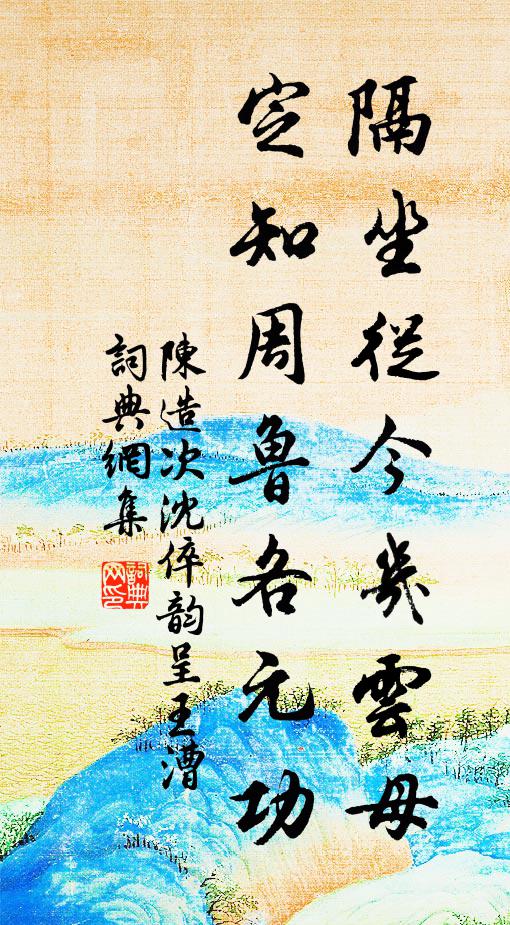 隔坐從今幾雲母
定知周魯各元功
陳造次沈倅韵呈王漕
詞典網集
詞典网印